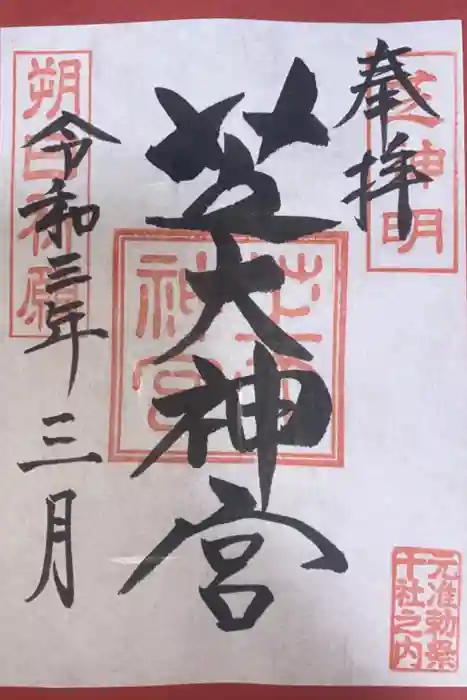 奉拝
芝神明
芝大神宮
芝大神宮
朔日祈願
令和三年三月
元准勅祭
十社之内